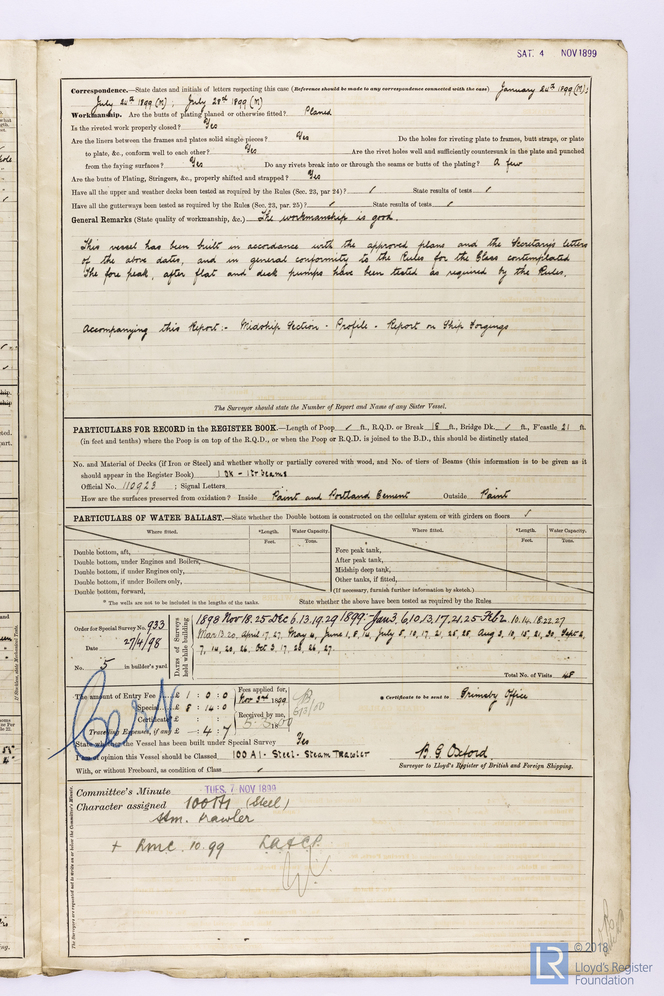 SAT. 4 NOV 1899
Correspondence.—State dates and initials of letters respecting this case (Reference should be made to any correspondence connected with the case) January 24th 1899 (M);
July 20th 1899 (M); July 28th 1899 (M)
Workmanship. Are the butts of plating planed or otherwise fitted? Planed
Is the riveted work properly closed? Yes
Are the liners between the frames and plates solid single pieces? Yes Do the holes for riveting plate to frames, butt straps, or plate
to plate, &c., conform well to each other? Yes Are the rivet holes well and sufficiently countersunk in the plate and punched
from the faying surfaces? Yes Do any rivets break into or through the seams or butts of the plating? A few
Are the butts of Plating, Stringers, &c., properly shifted and strapped? Yes
Have all the upper and weather decks been tested as required by the Rules (Sec. 23, par 24)? ✓ State results of tests ✓
Have all the gutterways been tested as required by the Rules (Sec. 23, par. 25)? ✓ State results of tests ✓
General Remarks (State quality of workmanship, &c.) The workmanship is good.
This vessel has been built in accordance with the approved plans and the Secretary's letters
of the above dates, and in general conformity to the Rules for the Class contemplated
The fore peak, after flat and deck pumps have been tested as required by the Rules.
Accompanying this Report:- Midship Section - Profile - Report on Ship Forgings
The Surveyor should state the Number of Report and Name of any Sister Vessel.
PARTICULARS FOR RECORD in the REGISTER BOOK.—Length of Poop ✓ ft., R.Q.D. or Break 18 ft., Bridge Dk. ✓ ft., F'castle 21 ft.
(in feet and tenths) where the Poop is on top of the R.Q.D., or when the Poop or R.Q.D. is joined to the B.D., this should be distinctly stated
No. and Material of Decks (if Iron or Steel) and whether wholly or partially covered with wood, and No. of tiers of Beams (this information is to be given as it
should appear in the Register Book) 1 Dk - 1 tr beams
Official No. 110923; Signal Letters
How are the surfaces preserved from oxidation? Inside Paint and Portland Cement Outside Paint
PARTICULARS OF WATER BALLAST.—State whether the Double bottom is constructed on the cellular system or with girders on floors ✓
Where fitted. *Length. Water Capacity. Where fitted. *Length. Water Capacity.
Feet. Tons. Feet. Tons.
Double bottom, aft, Fore peak tank,
Double bottom, under Engines and Boilers, After peak tank,
Double bottom, if under Engines only, Midship deep tank,
Double bottom, if under Boilers only, Other tanks, if fitted,
Double bottom, forward, (If necessary, furnish further information by sketch.)
* The wells are not to be included in the lengths of the tanks. State whether the above have been tested as required by the Rules
Order for Special Survey No. 933
Date 27/4/98
No. 5 in builder's yard
Dates of Surveys held while building
1898 Nov 18. 25 Dec 6. 13. 19. 29 1899:- Jan 3, 6, 10, 13, 17, 21, 25 Feb 2. 10. 14. 18. 22. 27
Mar 13. 20. April 17. 27. May 4, June 1, 8, 14, July 5, 10, 17, 21, 25, 28 Aug 3, 10, 15, 21, 30, Sept 2,
7, 14, 20, 26, Oct 3, 17, 23, 26, 27.
Total No. of Visits 48
The amount of Entry Fee £ 1 : 0 : 0
Special £ 8 : 14 : 0
Certificate £ : :
Travelling Expenses, if any £ - : 4 : 7
Fees applied for,
Nov 3rd 1899
Received by me,
6/3/00
* Certificate to be sent to Grimsby Office
Cert
State whether the Vessel has been built under Special Survey Yes
I am of opinion this Vessel should be Classed 100 A1 - Steel - Steam Trawler
With, or without Freeboard, as condition of Class ✓
B. G. Oxford
Surveyor to Lloyd's Register of British and Foreign Shipping.
Committee's Minute TUES. 7 NOV 1899
Character assigned 100A1 (Steel)
Stm. trawler
+ LMC. 10.99
The Surveyors are requested not to write on or below the Committee's Minute.
LR
© 2018
Lloyd's Register
Foundation